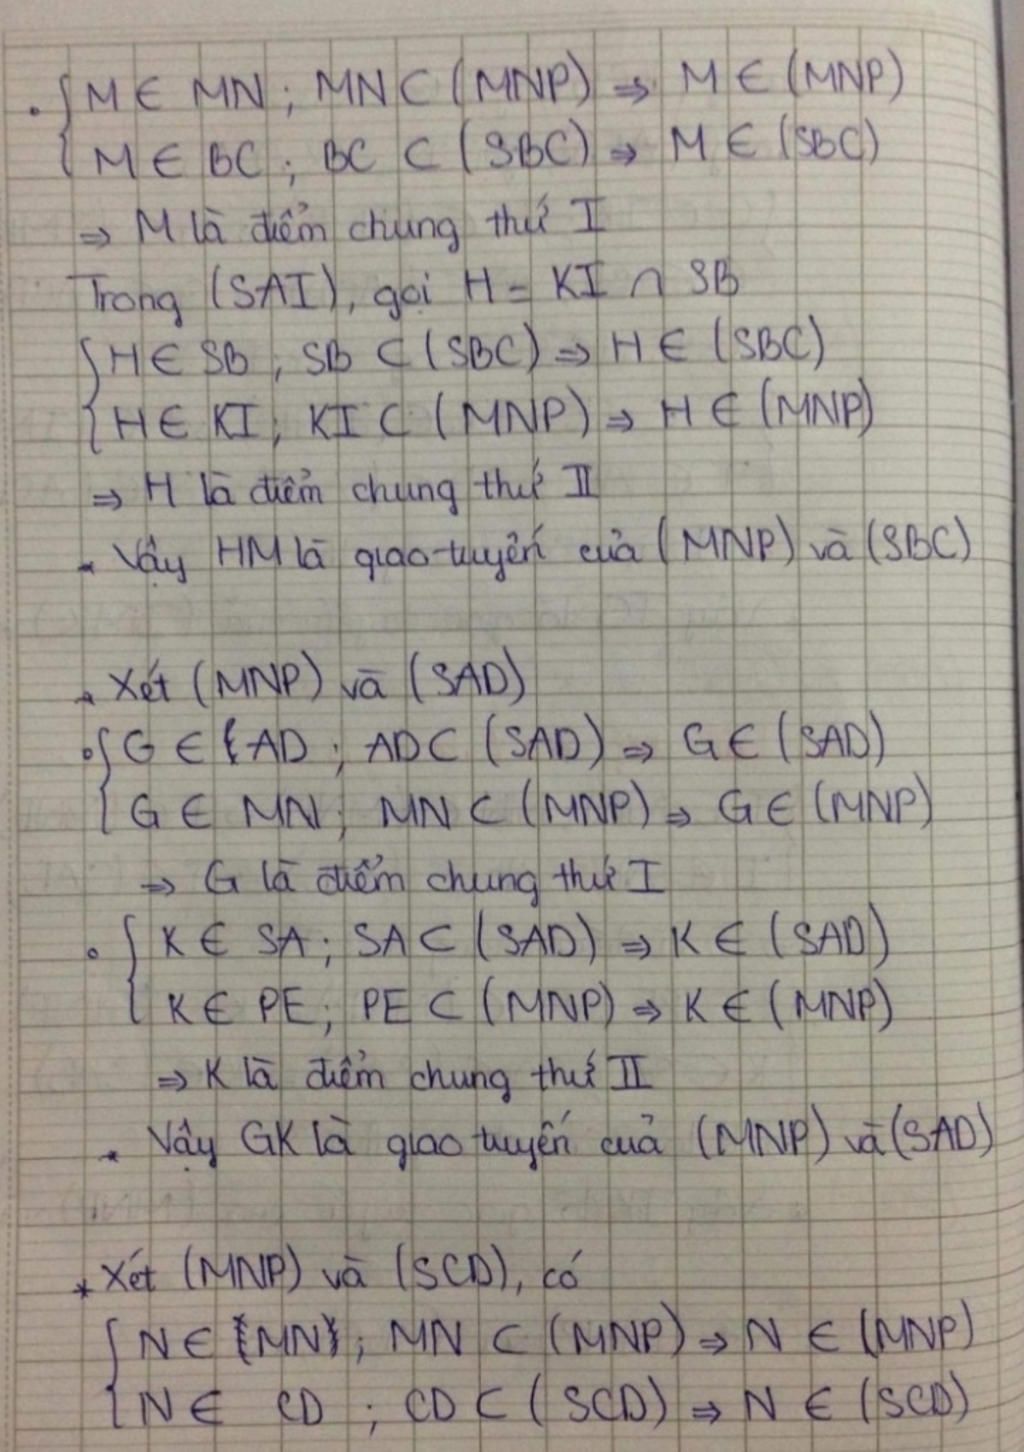 . { M ∈ MN ; MN ⊂ (MNP) ⇒ M ∈ (MNP)
{ M ∈ BC ; BC ⊂ (SBC) ⇒ M ∈ (SBC)
⇒ M là điểm chung thứ I
Trong (SAI), gọi H = KI ∩ SB
{ H ∈ SB ; SB ⊂ (SBC) ⇒ H ∈ (SBC)
{ H ∈ KI ; KI ⊂ (MNP) ⇒ H ∈ (MNP)
⇒ H là điểm chung thứ II
- Vậy HM là giao tuyến của (MNP) và (SBC)
* Xét (MNP) và (SAD)
. { G ∈ AD ; AD ⊂ (SAD) ⇒ G ∈ (SAD)
{ G ∈ MN ; MN ⊂ (MNP) ⇒ G ∈ (MNP)
⇒ G là điểm chung thứ I
. { K ∈ SA ; SA ⊂ (SAD) ⇒ K ∈ (SAD)
{ K ∈ PE ; PE ⊂ (MNP) ⇒ K ∈ (MNP)
⇒ K là điểm chung thứ II
- Vậy GK là giao tuyến của (MNP) và (SAD)
* Xét (MNP) và (SCD), có
{ N ∈ MN ; MN ⊂ (MNP) ⇒ N ∈ (MNP)
{ N ∈ CD ; CD ⊂ (SCD) ⇒ N ∈ (SCD)